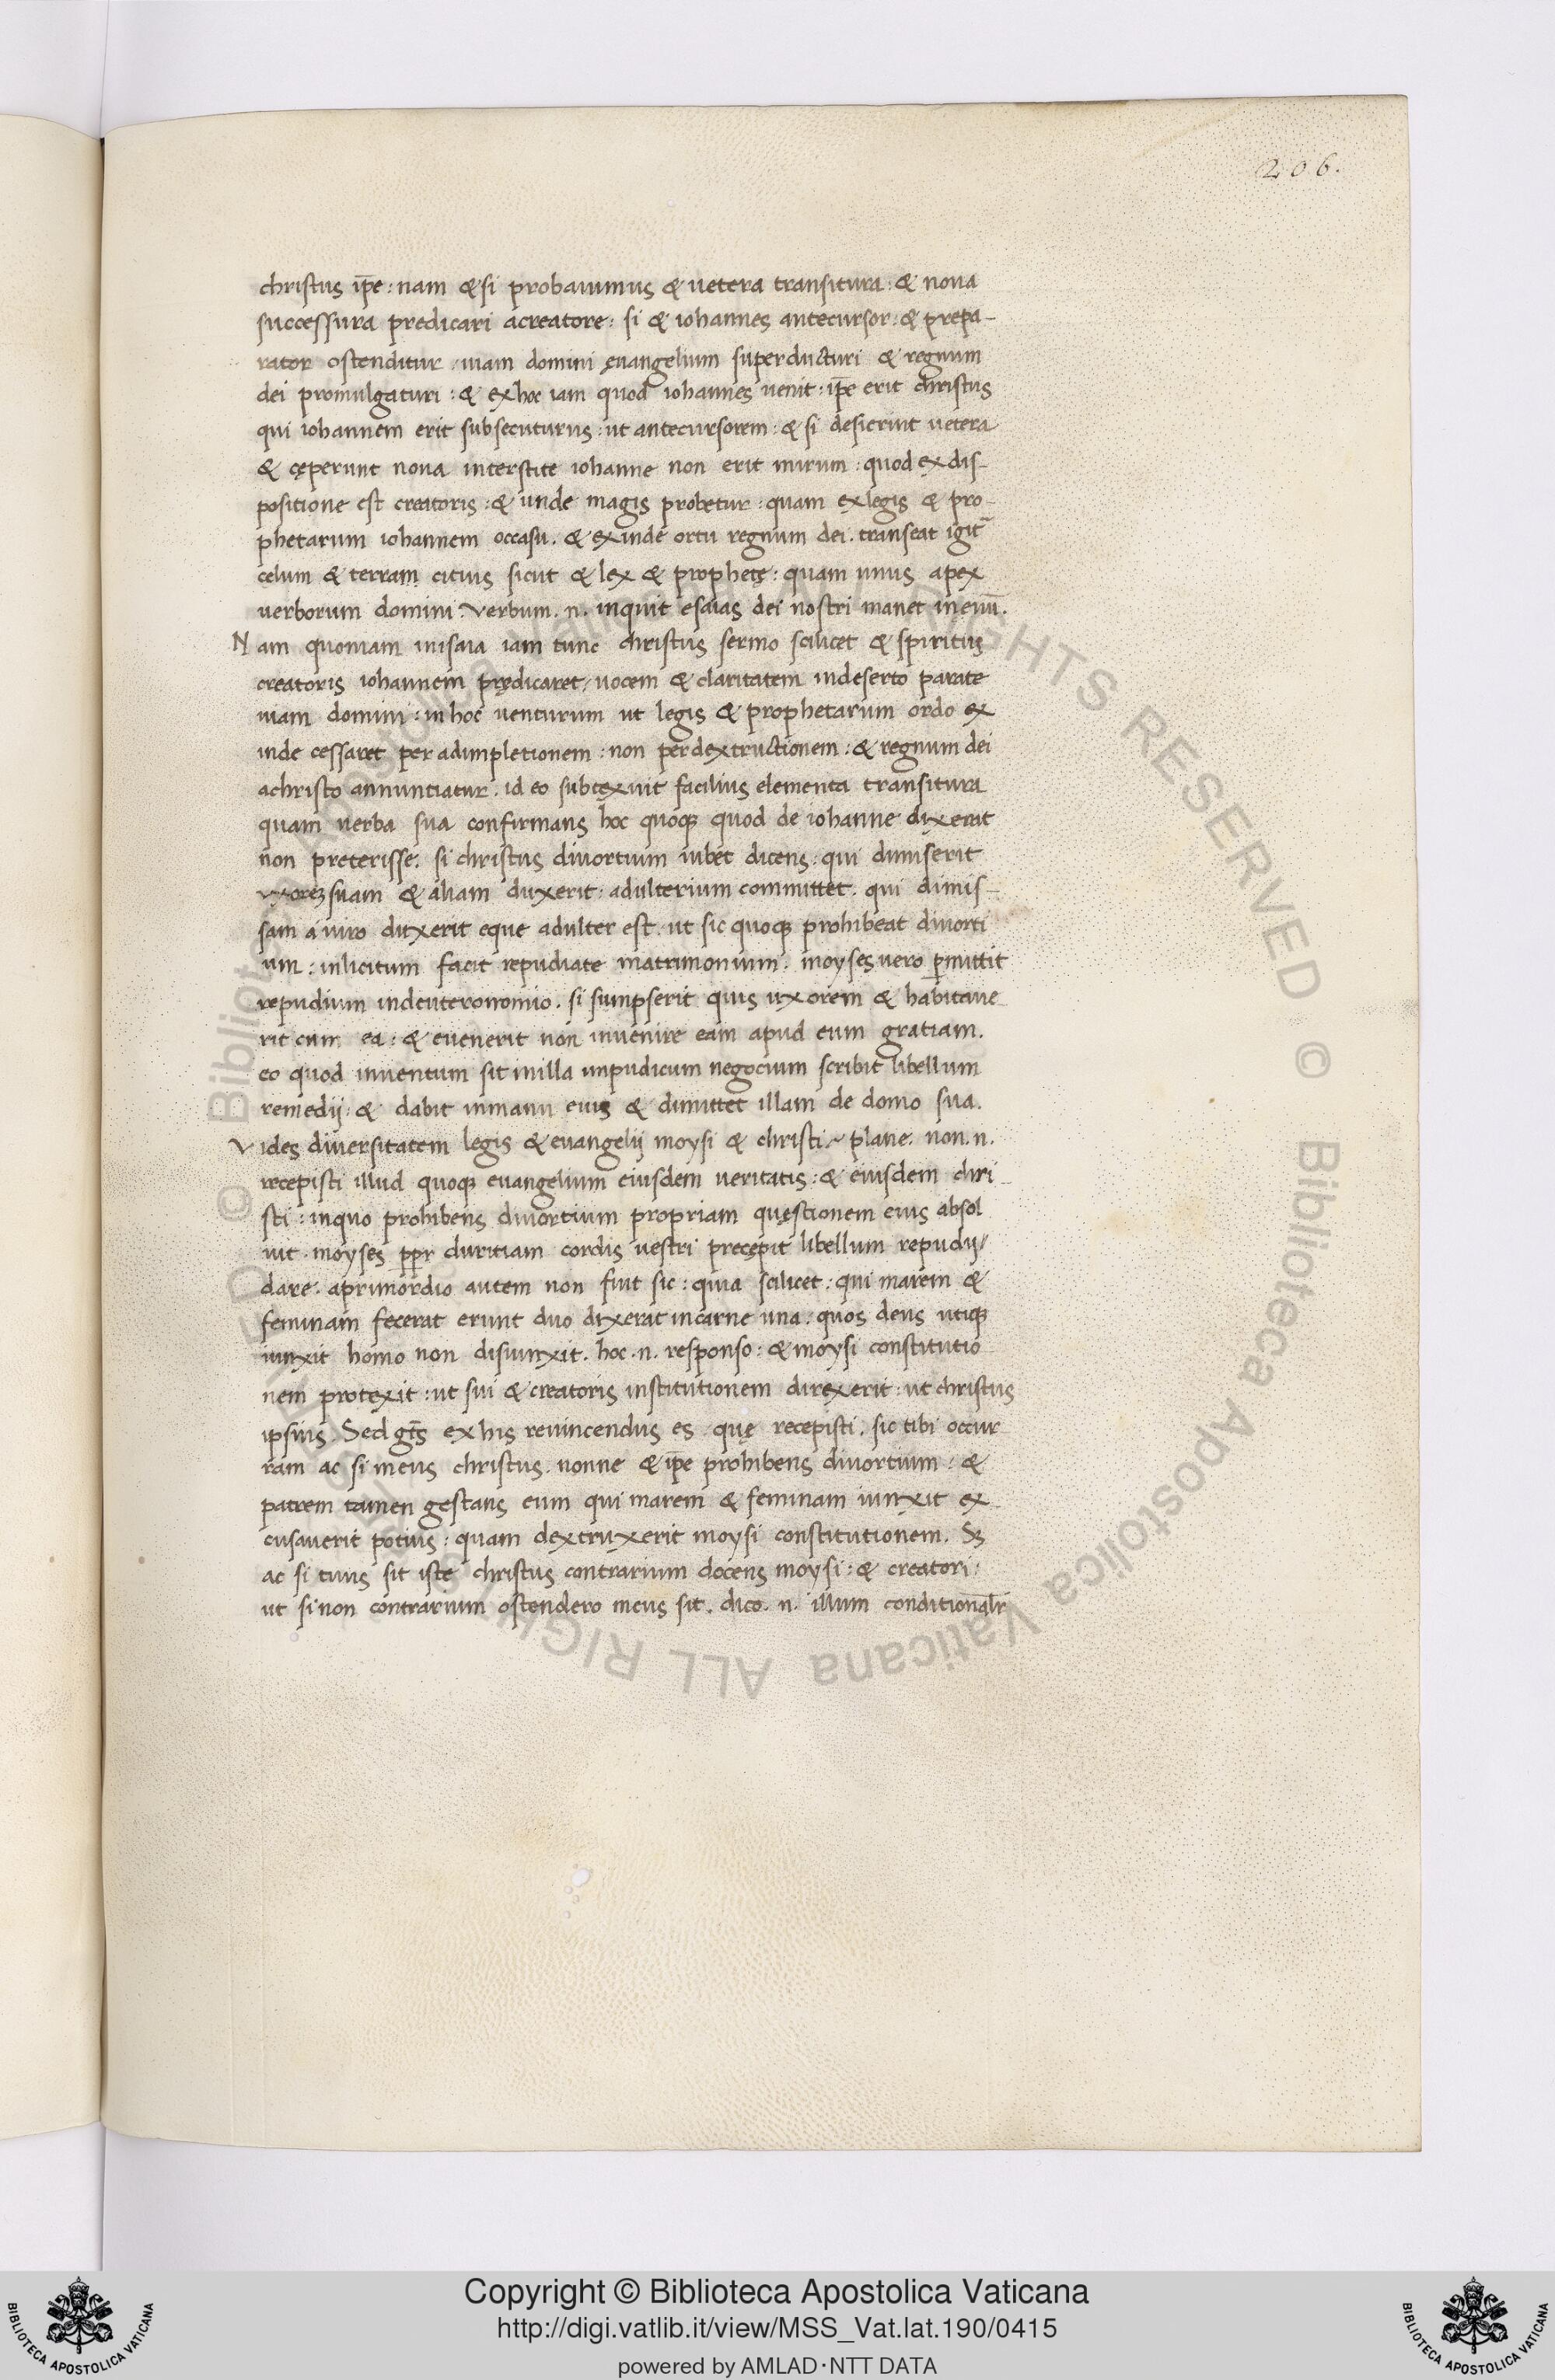 206.
christus ip̅e: nam & si probauimus & uetera transitura: & noua
successura predicari acreatore: si & iohannes antecursor: & prepa-
rator ostenditur uiam domini ęuangelium superducturi & regnum
dei promulgaturi: & exhoc iam quod iohannes uenit: ip̅e erit christus
qui iohannem erit subsecuturus: ut antecursorem: & si desierint uetera
& cęperunt noua interstite iohanne non erit mirum: quod exdis-
positione est creatoris: & unde magis probetur: quam exlegis & pro-
phetarum iohannem occasu. & exinde ortu regnum dei. transeat igit̅
celum & terram citius sicut & lex & prophetę: quam unus apex
uerborum domini. verbum. n. inquit esaias dei nostri manet inęuu̅.
Nam quoniam inisaia iam tunc christus sermo scilicet & spiritus
creatoris iohannem prędicaret/ uocem & claritatem indeserto parate
uiam domini: in hoc uenturum ut legis & prophetarum ordo ex
inde cessaret per adimpletionem: non perdextructionem: & regnum dei
achristo annuntiatur. id eo subtexuit facilius elementa transitura
quam uerba sua confirmans hoc quoq; quod de iohanne dixerat
non preterisse. si christus diuortium iubet dicens: qui dimiserit
vxorez suam & aliam duxerit: adulterium committet. qui dimis-
sam a uiro duxerit eque adulter est. ut sic quoq; prohibeat diuorti
um: inlicitum facit repudiate matrimonium. moyses uero p̅mittit
repudium indeuteronomio. si sumpserit quis uxorem & habitaue-
rit cum ea: & euenerit non inuenire eam apud eum gratiam.
eo quod inuentum sit inilla impudicum negocium scribit libellum
remedij: & dabit inmanu eius & dimittet illam de domo sua.
Vides diuersitatem legis & euangelij moysi & christi~ plane. non. n.
recepisti illud quoq; euangelium eiusdem ueritatis: & eiusdem chri-
sti: inquo prohibens diuortium propriam quęstionem eius absol
uit. moyses pp̅r duritiam cordis uestri precępit libellum repudij/
dare. aprimordio autem non fuit sic: quia scilicet: qui marem &
feminam fecerat erunt duo dixerat incarne una: quos deus utiq;
iunxit homo non disiunxit. hoc. n. responso: & moysi constitutio
nem protexit: ut sui & creatoris institutionem direxerit: ut christus
ipsius. Sed gt̅s ex his reuincendus es quę recepisti. sic tibi occur
ram ac si meus christus. nonne & ip̅e prohibens diuortium: &
patrem tamen gestans eum qui marem & feminam iunxit ex-
cusauerit potius: quam dextruxerit moysi constitutionem. Sz
ac si tuus sit iste christus contrarium docens moysi: & creatori:
ut si non contrarium ostendero meus sit. dico. n. illum conditional̅r
© Biblioteca Apostolica Vaticana ALL RIGHTS RESERVED © Biblioteca Apostolica Vaticana ALL RIGHTS RESERVED
Copyright © Biblioteca Apostolica Vaticana
http://digi.vatlib.it/view/MSS_Vat.lat.190/0415
powered by AMLAD·NTT DATA
BIBLIOTECA APOSTOLICA VATICANA
BIBLIOTECA APOSTOLICA VATICANA